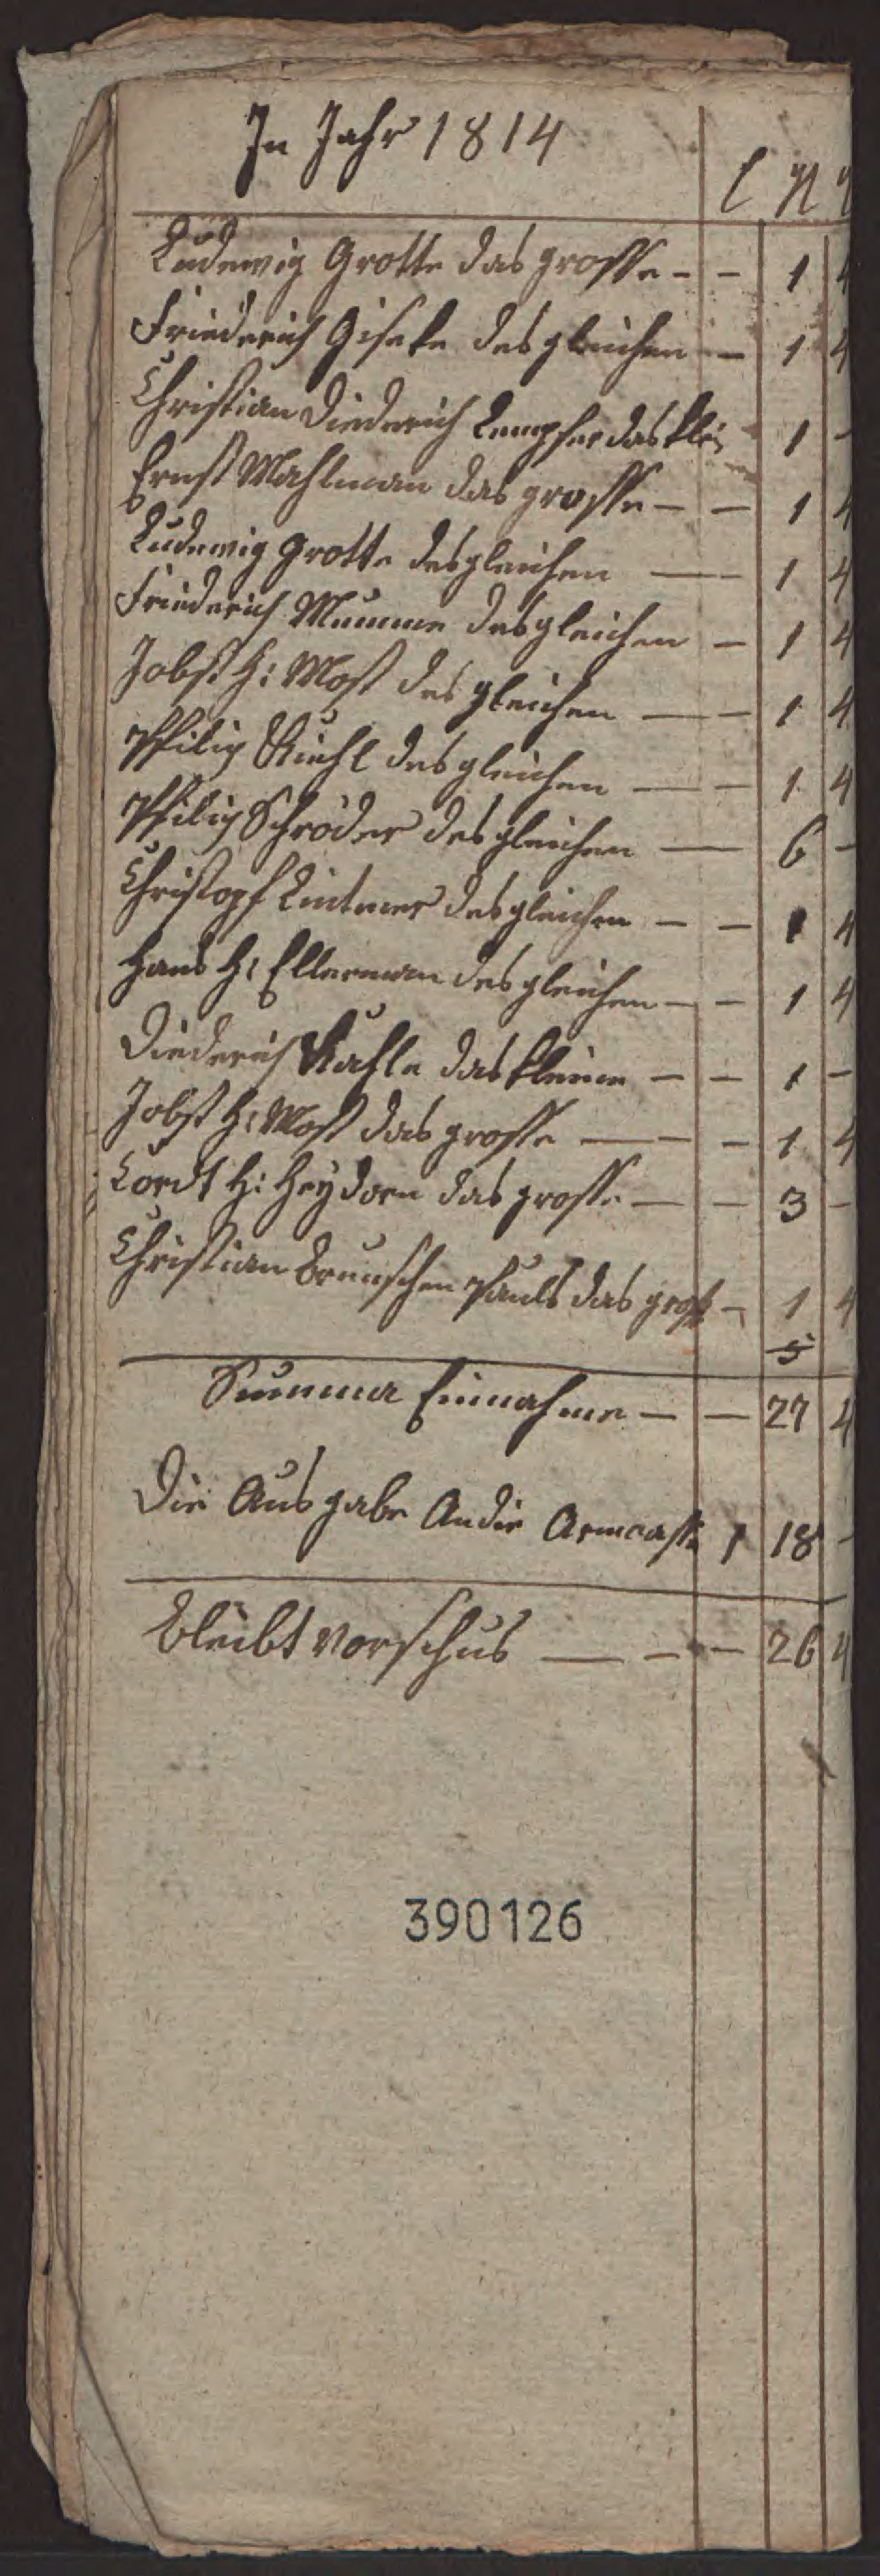 In Jahr 1814
Ludewig Grotte das grosse - - 1 4
Friederich Giseke desgleichen - 1 4
Christian Diederich das klei 1 -
Ernst Mahlman das grosse - - 1 4
Ludewig Grotte desgleichen - - 1 4
Friederich Mumme desgleichen - 1 4
Jobst H: Most desgleichen - - 1 4
Philip Kuhl desgleichen - - 1 4
Philip Schröder desgleichen - 6 -
Christopf desgleichen - - 1 4
Hans H: Ellerman desgleichen - - 1 4
Diederich Kahle das kleine - - 1 -
Jobst H: Most das grosse - - - 1 4
Cordt H: Heydorn das grosse - - 3 -
Christian das gross - 1 4
5
Summa Einnahme - - 27 4
Die Ausgabe An die Armcasse 1 18 -
Bleibt vorschus - - - 26 4
390126